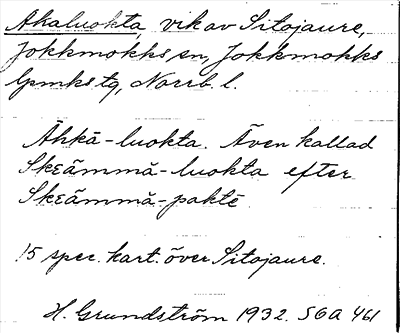 Akaluokta, vik av Sitojaure,
Jokkmokks sn, Jokkmokks
lpmks tg, Norrb. l.
Āhkā-luokta. Även kallad
Skeämmă-luokta efter
Skeämmă-pakte.
15 spec. kart. över Sitojaure.
H. Grundström 1932. SGA 461